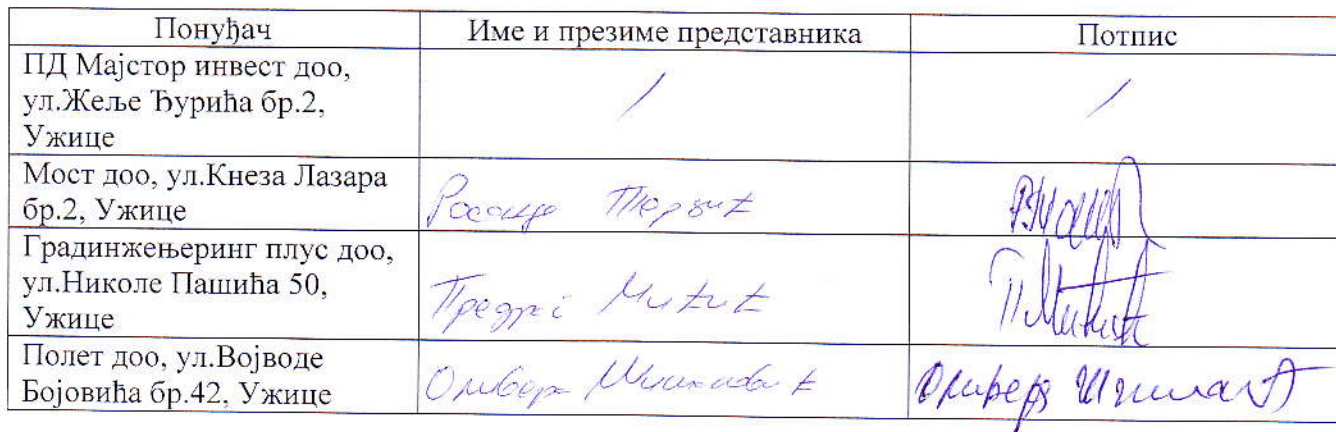 Понуђач Име и презиме представника Потпис
ПД Мајстор инвест доо,
ул.Жеље Ђурића бр.2, / /
Ужице
Мост доо, ул.Кнеза Лазара
бр.2, Ужице
Градинжењеринг плус доо,
ул.Николе Пашића 50,
Ужице Предраг Митић
Полет доо, ул.Војводе
Бојовића бр.42, Ужице Оливера